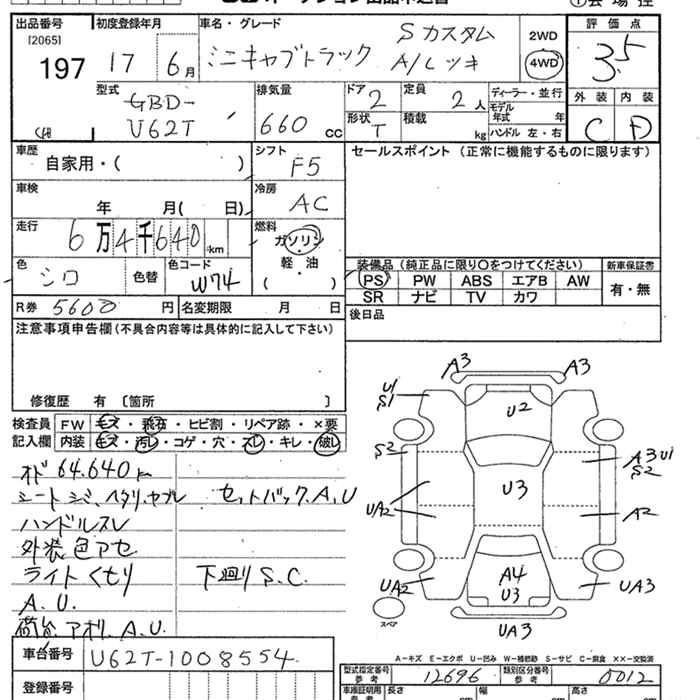 出品番号
[2065]
197
初度登録年月
17 6月
車名・グレード
ミニキャブトラック
Sカスタム
A/Lッキ
2WD
4WD
評価点
3.5
外装 内装
C D
型式
GBD-
U62T
排気量
660 cc
ドア 2
形状 T
定員 2人
積載 kg
ディーラー・並行
モデル
年式 年
ハンドル 左・右
車歴
自家用・( )
シフト
F5
セールスポイント (正常に機能するものに限ります)
車検
年 月( 日)
冷房
AC
走行
6万4千640km
燃料
ガソリン
軽・油
( )
色
シロ
色替
色コード
W74
装備品 (純正品に限り○をつけてください)
PS PW ABS エアB AW
SR ナビ TV カワ
新車保証書
有・無
R券 5600円
名変期限 月 日
後日品
注意事項申告欄(不具合内容等は具体的に記入して下さい)
修復歴 有 〔箇所 〕
検査員
記入欄
FW キズ・飛石・ヒビ割・リペア跡・×要
内装 キズ・汚レ・コゲ・穴・スレ・キレ・破レ
オド 64.640km
シート シミ、ヘタリ、ヤブレ
セットバック.A.U
ハンドルスレ
外装 色アセ
ライト くもり
下廻り S.C.
A.U.
荷台、アオリ、A.U.
車台番号 U62T-1008554
登録番号
A3 A3
U1
S1
U2
S2
A3 U1
S2
U3
UA2
A2
UA2
A4
U3
UA3
UA3
スペア
A-キズ E-エクボ U-凹み W-補修跡 S-サビ C-腐食 ××-交換済
型式指定番号
参考
12696
類別区分番号
参考
0012
車検証明用
参考
長さ
幅
高さ